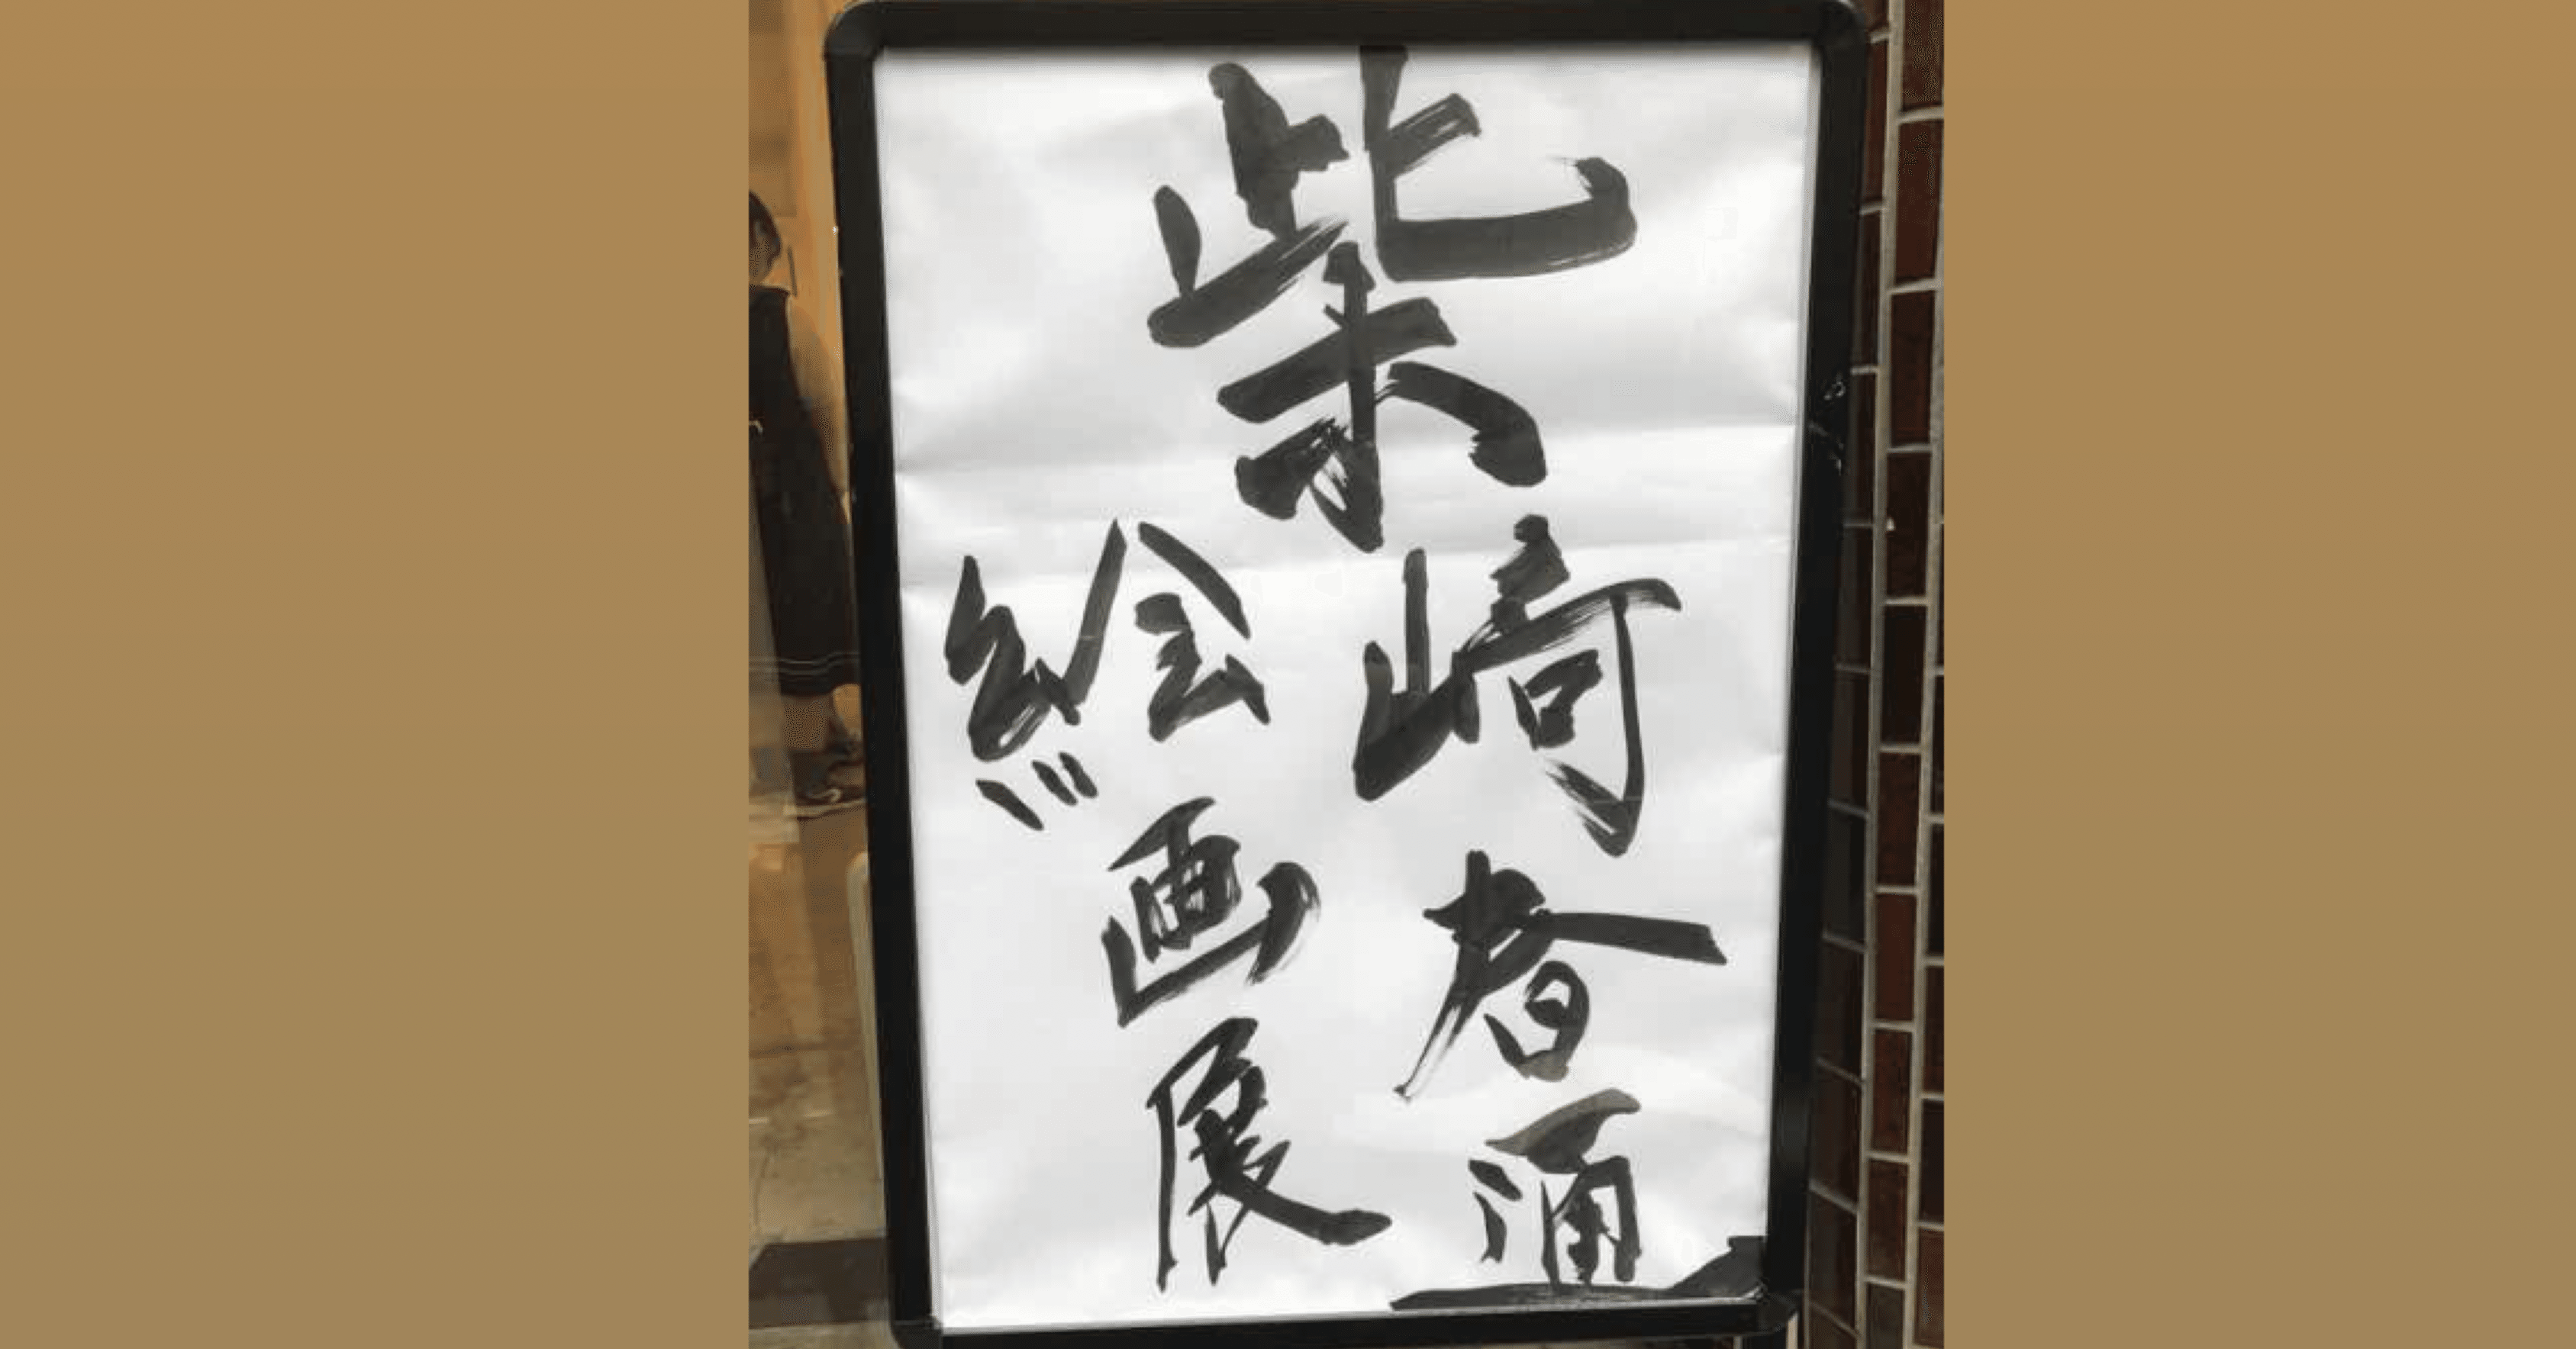 柴崎春通
絵画展